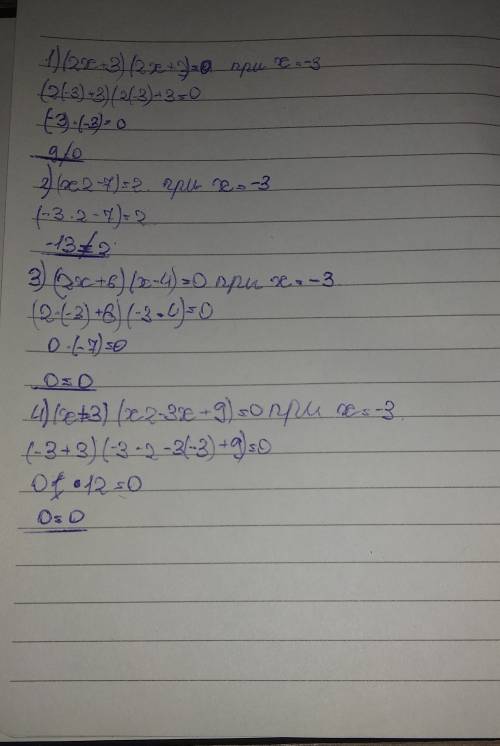 1) (2x+3)(2x+3)=0 при x=-3
(2(-3)+3)(2(-3)+3=0
(-3)·(-3)=0
9≠0
2) (x2-7)=2 при x=-3
(-3·2-7)=2
-13≠2
3) (2x+6)(x-4)=0 при x=-3
(2·(-3)+6)(-3-4)=0
0·(-7)=0
0=0
4) (x+3)(x2-3x+9)=0 при x=-3
(-3+3)(-3·2-3(-3)+9)=0
0·12=0
0=0